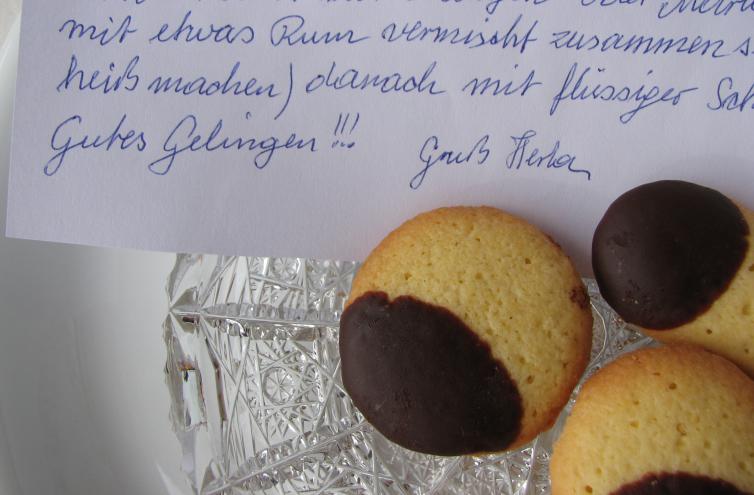 mit etwas Rum vermischt zusammen
heiß machen) danach mit flüssiger
Gutes Gelingen!!!
Gruß Herta